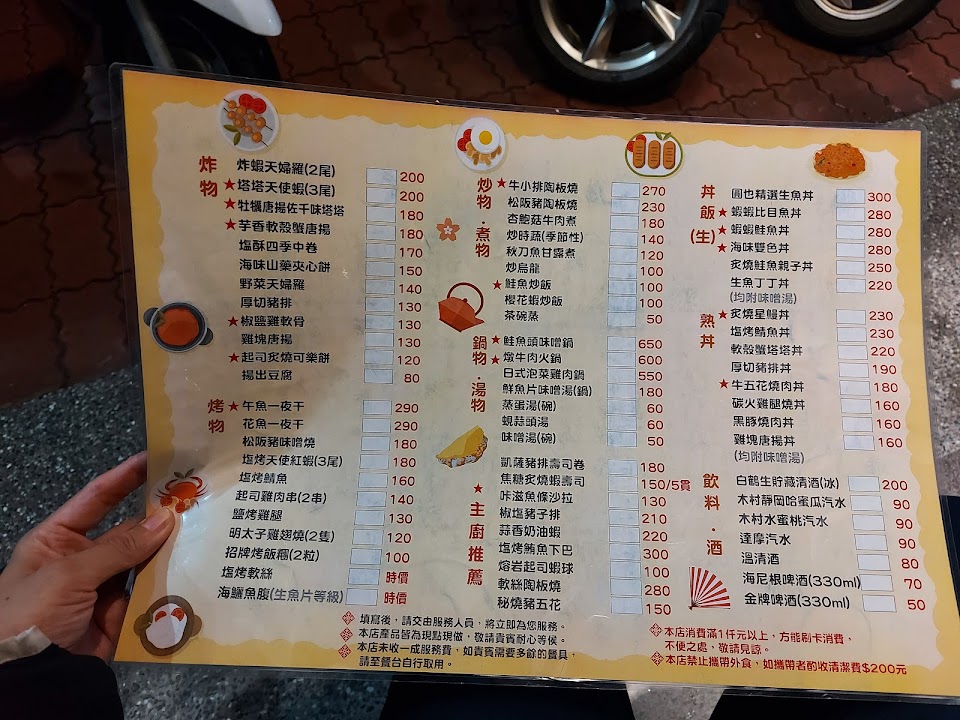 炸物
炸蝦天婦羅(2尾) 200
★塔塔天使蝦(3尾) 200
★牡犡唐揚佐千味塔塔 180
★芋香軟殼蟹唐揚 180
塩酥四季中卷 170
海味山藥夾心餅 150
野菜天婦羅 140
厚切豬排 130
★椒鹽雞軟骨 130
雞塊唐揚 130
★起司炙燒可樂餅 120
揚出豆腐 80
烤物
★午魚一夜干 290
花魚一夜干 290
松阪豬味噌燒 180
塩烤天使紅蝦(3尾) 180
塩烤鯖魚 160
起司雞肉串(2串) 140
鹽烤雞腿 130
明太子雞翅燒(2隻) 120
招牌烤飯糰(2粒) 100
塩烤軟絲 時價
海鱺魚腹(生魚片等級) 時價
炒物·煮物
★牛小排陶板燒 270
松阪豬陶板燒 230
杏鮑菇牛肉煮 180
炒時蔬(季節性) 140
秋刀魚甘露煮 120
炒烏龍 100
★鮭魚炒飯 100
櫻花蝦炒飯 100
茶碗蒸 50
鍋物·湯物
★鮭魚頭味噌鍋 650
★燉牛肉火鍋 600
日式泡菜雞肉鍋 550
鮮魚片味噌湯(鍋) 180
蒸蛋湯(碗) 60
蜆蒜頭湯 60
味噌湯(碗) 50
★主廚推薦
凱薩豬排壽司卷 180
焦糖炙燒蝦壽司 150/5貫
咔滋魚條沙拉 130
椒塩豬子排 210
蒜香奶油蝦 220
塩烤鮪魚下巴 300
熔岩起司蝦球 100
軟絲陶板燒 280
秘燒豬五花 150
丼飯(生)
圓也精選生魚丼 300
★蝦蝦比目魚丼 280
★蝦蝦鮭魚丼 280
★海味雙色丼 280
炙燒鮭魚親子丼 250
生魚丁丁丼 220
(均附味噌湯)
熟丼
★炙燒星鰻丼 230
塩烤鯖魚丼 230
軟殼蟹塔塔丼 220
厚切豬排丼 190
★牛五花燒肉丼 180
碳火雞腿燒丼 160
黑豚燒肉丼 160
雞塊唐揚丼 160
(均附味噌湯)
飲料·酒
白鶴生貯藏清酒(冰) 200
木村靜岡哈蜜瓜汽水 90
木村水蜜桃汽水 90
達摩汽水 90
溫清酒 80
海尼根啤酒(330ml) 70
金牌啤酒(330ml) 50
填寫後，請交由服務人員，將立即為您服務。
本店產品皆為現點現做，敬請貴賓耐心等侯。
本店未收一成服務費，如貴賓需要多餘的餐具，
請至餐台自行取用。
本店消費滿1仟元以上，方能刷卡消費，
不便之處，敬請見諒。
本店禁止攜帶外食，如攜帶者酌收清潔費$200元